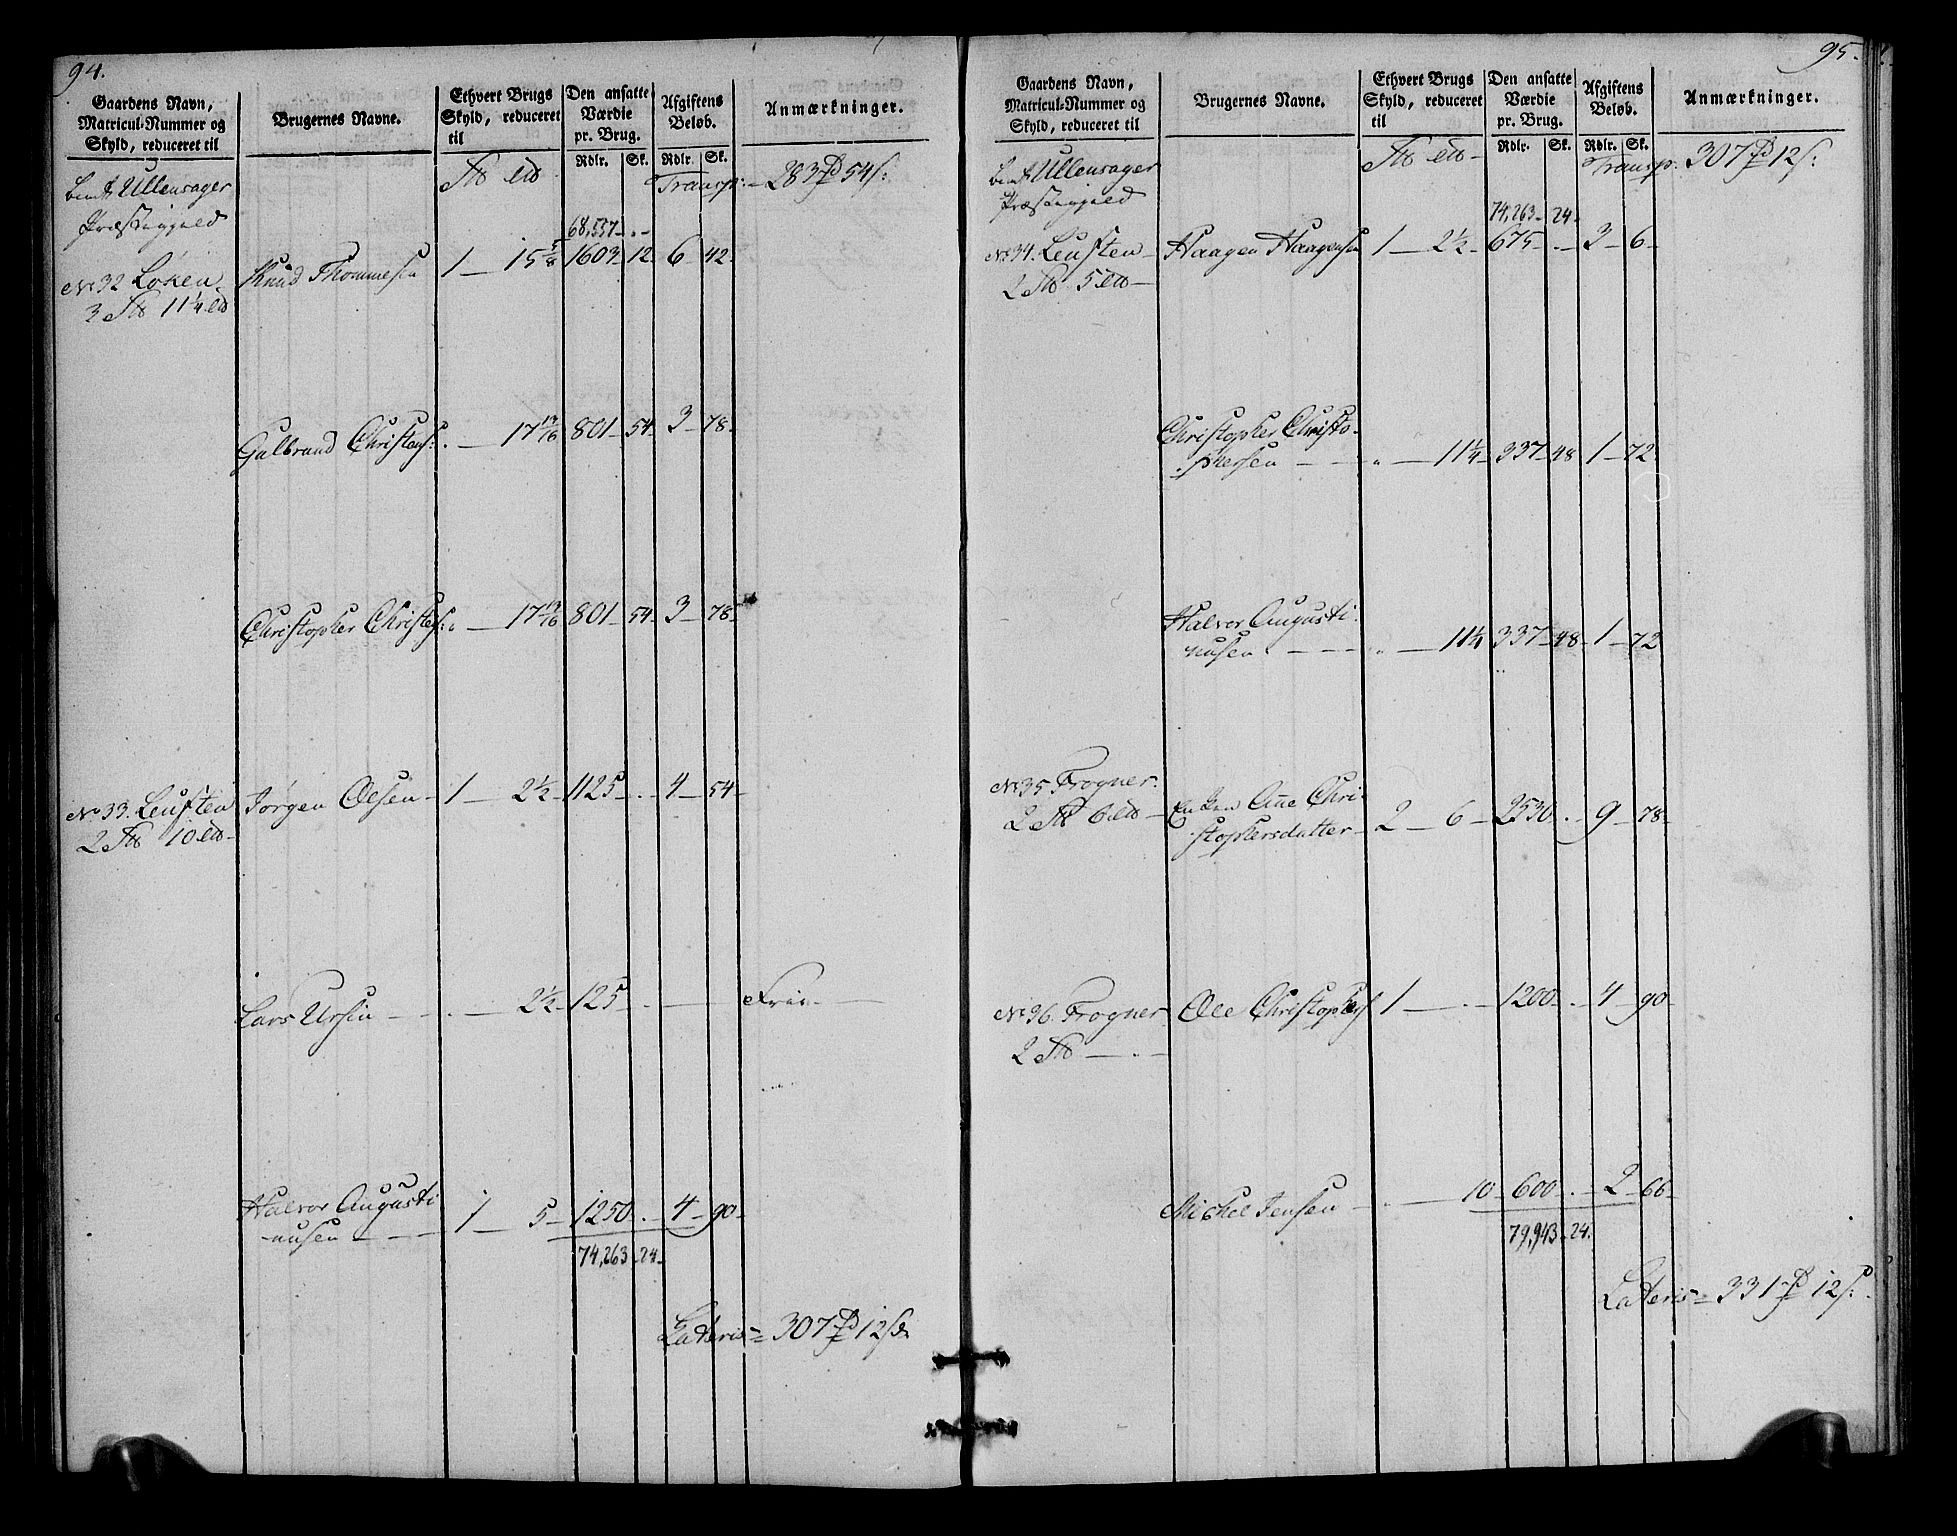 94.
Gaardens Navn,
Matricul-Nummer og
Skyld, reduceret til
Brugernes Navne.
Ethvert Brugs
Skyld, reduceret
til
Den ansatte
Værdie
pr. Brug.
Rdlr. Sk.
Afgiftens
Beløb.
Rdlr. Sk.
Anmærkninger.
Ullensager
Præstegield
Transp: 283 54
68,557
No 32 Løken Knud Thommesen 1 - 15 5/8 1603 12 6 42
3 11 1/4
Gulbrand Christens: . - 17 13/16 801 54 3 78
Christopher Christens: . - 17 13/16 801 54 3 78
No 33. Leusten Jørgen Olsen 1 - 2 1/2 1125 . 4 54
2 10
Lars Ursin . 2 1/2 125 Frie
Halvor Augusti
nusen 1 - 5 1250 . 4 90
74,263 24
Lateris = 307 12
95.
Gaardens Navn,
Matricul-Nummer og
Skyld, reduceret til
Brugernes Navne.
Ethvert Brugs
Skyld, reduceret
til
Den ansatte
Værdie
pr. Brug.
Rdlr. Sk.
Afgiftens
Beløb.
Rdlr. Sk.
Anmærkninger.
Ullensager
Præstegield
Transp. 307 12
74,263 24
No 34. Leusten Haagen Haagensen 1 - 2 1/2 675 . 6
2 5
Christopher Christo-
phersen „ 11 1/4 337 48 1 72
Halvor Augusti
nusen „ 11 1/4 337 48 1 72
No 35 Frogner.
2 6
Enken Ane Chri-
stophersdatter 2 - 6 2530 . 9 78
No 36. Frogner Ole Christophers 1 . 1200 . 4 90
2
Michel Jensen 10 600 . 2 66
79,943 24.
Lateris = 331 12